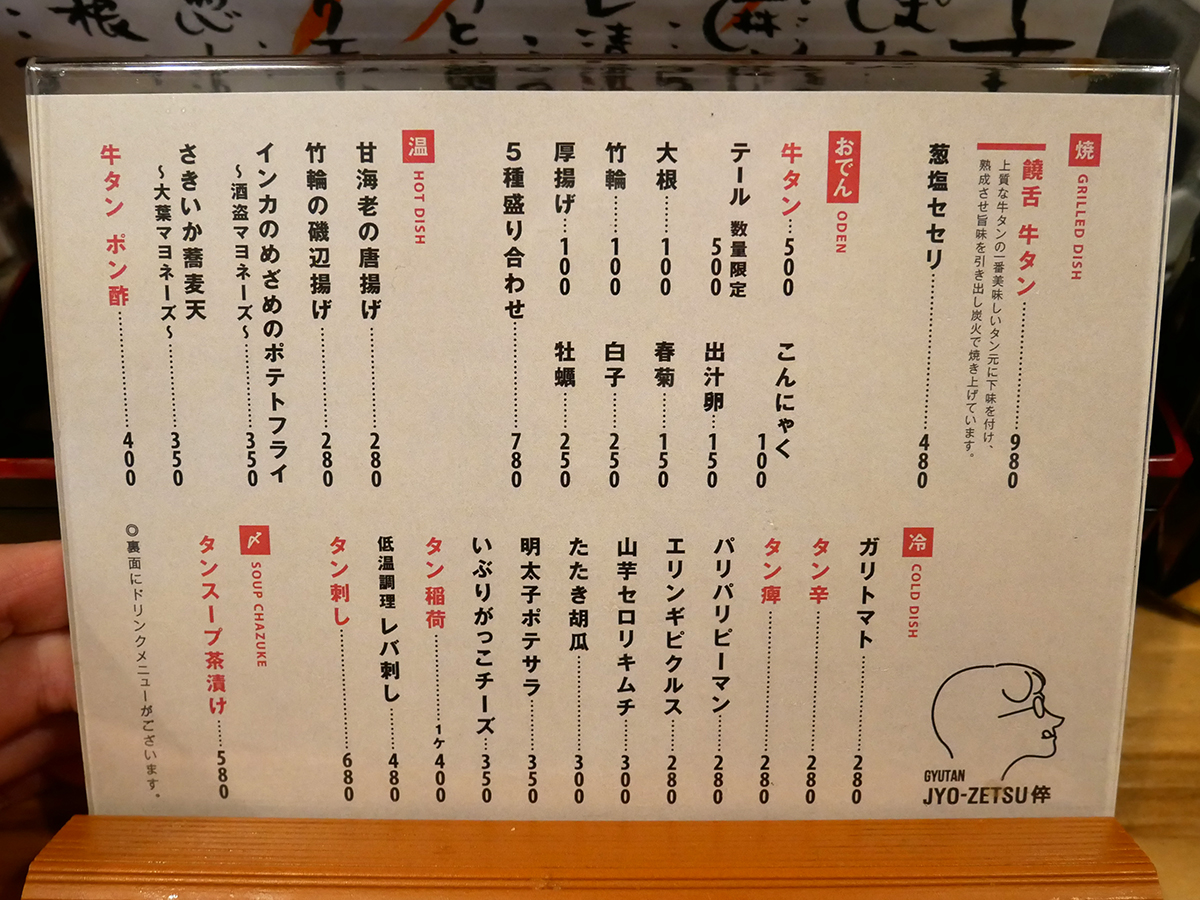 焼 GRILLED DISH
饒舌 牛タン 980
上質な牛タンの一番美味しいタン元に下味を付け、
熟成させ旨味を引き出し炭火で焼き上げています。
葱塩セセリ 480
おでん ODEN
牛タン 500
テール 数量限定 500
大根 100
竹輪 100
厚揚げ 100
こんにゃく 100
出汁卵 150
春菊 150
白子 250
牡蠣 250
5種盛り合わせ 780
温 HOT DISH
甘海老の唐揚げ 280
竹輪の磯辺揚げ 280
インカのめざめのポテトフライ
〜酒盗マヨネーズ〜 350
さきいか蕎麦天
〜大葉マヨネーズ〜 350
牛タン ポン酢 400
冷 COLD DISH
ガリトマト 280
タン辛 280
タン痺 280
パリパリピーマン 280
エリンギピクルス 280
山芋セロリキムチ 300
たたき胡瓜 300
明太子ポテサラ 350
いぶりがっこチーズ 350
タン稲荷 1ケ400
低温調理 レバ刺し 480
タン刺し 680
〆 SOUP CHAZUKE
タンスープ茶漬け 580
◎裏面にドリンクメニューがございます。
GYUTAN
JYO-ZETSU 倅